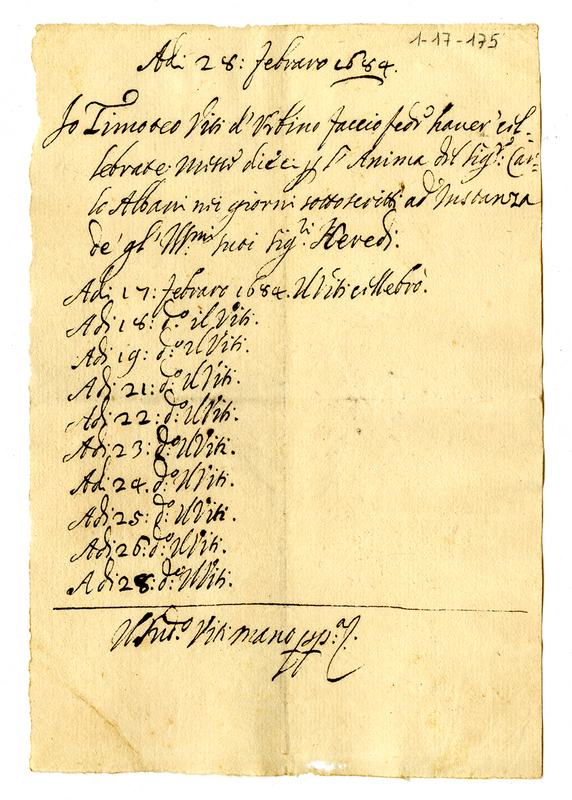 1-17-175
Adi 28: febraro 1684.
Io Timoteo Viti d'Urbino faccio fede haver' cel-
lebrate Messe dieci p l'Anima del Sigr. Car-
lo Albani nei giorni sottoscritti ad Instanza
de gl' Illmi suoi Sigri. Heredi.
Adi 17: febraro 1684. Il Viti cellebrò.
Adi 18: do. il Viti.
Adi 19: do. il Viti.
Adi 21: do. il Viti.
Adi 22: do. il Viti.
Adi 23: do. il Viti.
Adi 24. do. il Viti.
Adi 25: do. il Viti.
Adi 26: do. il Viti.
Adi 28: do. il Viti.
Il Sudo. Viti mano ppa.